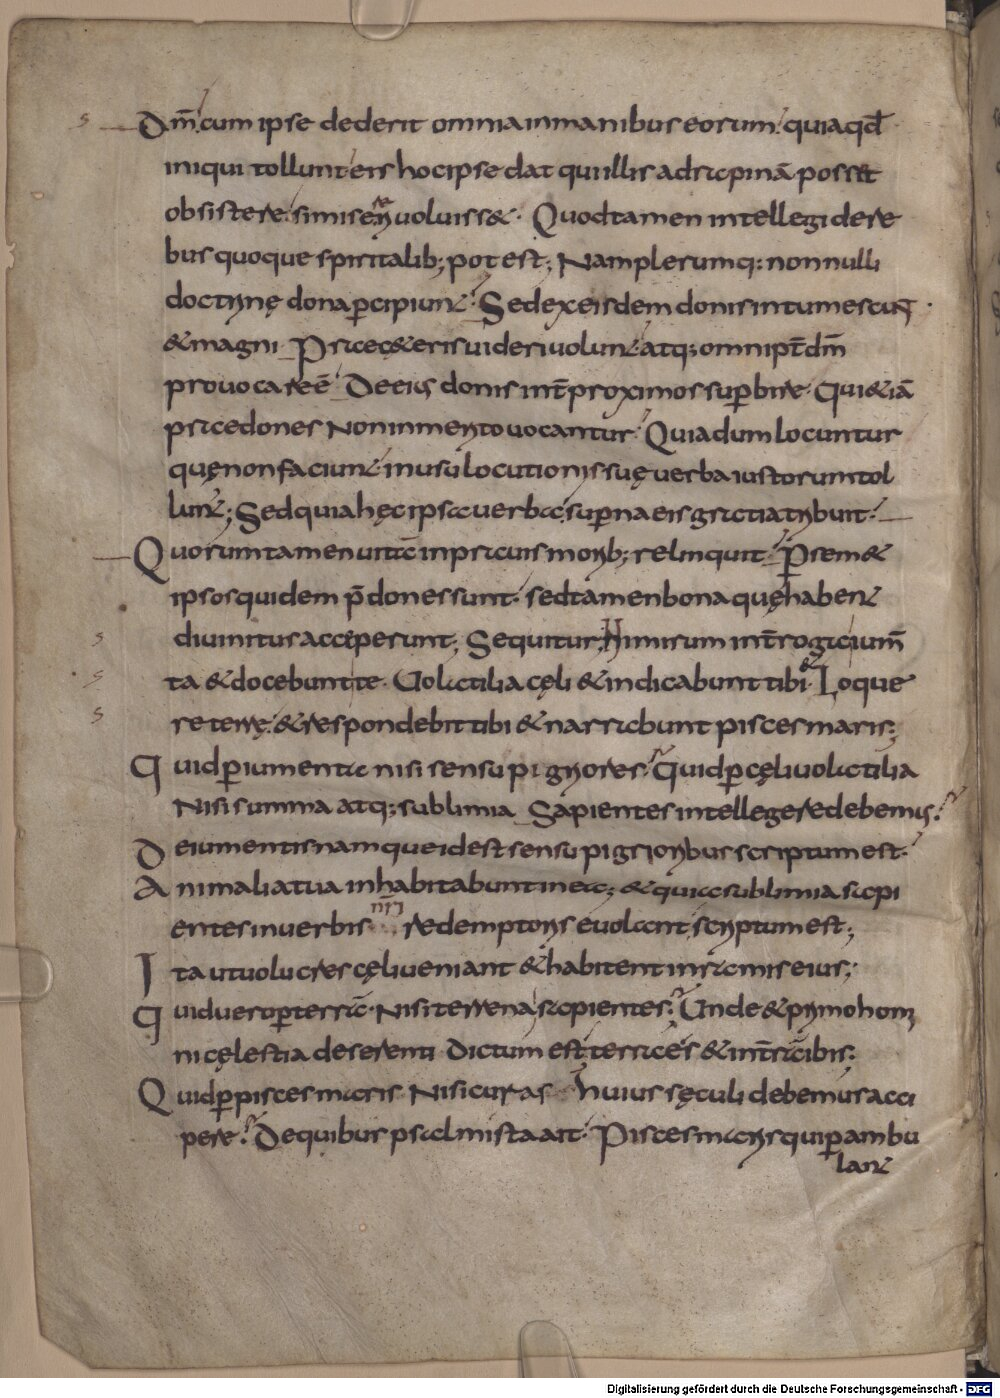 Dm̄ cum ipse dederit omnia in manibus eorum; quia qd̄
iniqui tollunt eis hoc ipse dat qui illis ad rapinā posset
obsistere si misereri voluisset. Quod tamen intellegi de re
bus quoque spiritalib; potest; Nam plerumq; non nulli
doctrinę dona ꝑcipiunt. Sed ex eisdem donis intumescunt
& magni. Prae cęteris videri volunt atq; omnipt̄ dm̄
provocare ē. De eius donis int̄ proximos suꝑbire. Qui & iā
praedones non inmerito vocantur. Quia dum locuntur
quę non faciunt in usū locutionis suę verba iustorum tol
lunt; Sed quia hęc ipsa verba suꝑna eis gratia tribuit.
Quorum tamen vitā in pravis morib; relinquit. Ꝑsem &
ipsos quidem p̄dones sunt. sed tamen bona quę habent
divinitus acceperunt; Sequitur. Nimirum int̄roga ium̄
ta & docebunt te. Volatilia cęli & indicabunt tibi. Loque
re terrę & respondebit tibi & narrabunt pisces maris;
Quid ꝑ iumenta nisi sensu pigriores? Quid ꝑ cęli volatilia
Nisi summa atq; sublimia Sapientes intellegere debemus?
De iumentis namque id est sensu pigrioribus scriptum est.
Animalia tua inhabitabunt in ea; & quia sublimia sapi
entes in verbis nr̄i redemptoris evolant scriptum est;
Ita ut volucres cęli veniant & habitent in ramis eius;
Quid vero ꝑ terrā. Nisi terrena sapientes? Unde & primo homi
ni cęlestia deserenti dictum est terra es & in t̄rā ibis;
Quid ꝑ pisces maris Nisi curas huius sęculi debemus acci
pere? De quibus psalmista ait. Pisces maris qui ꝑambu
lant